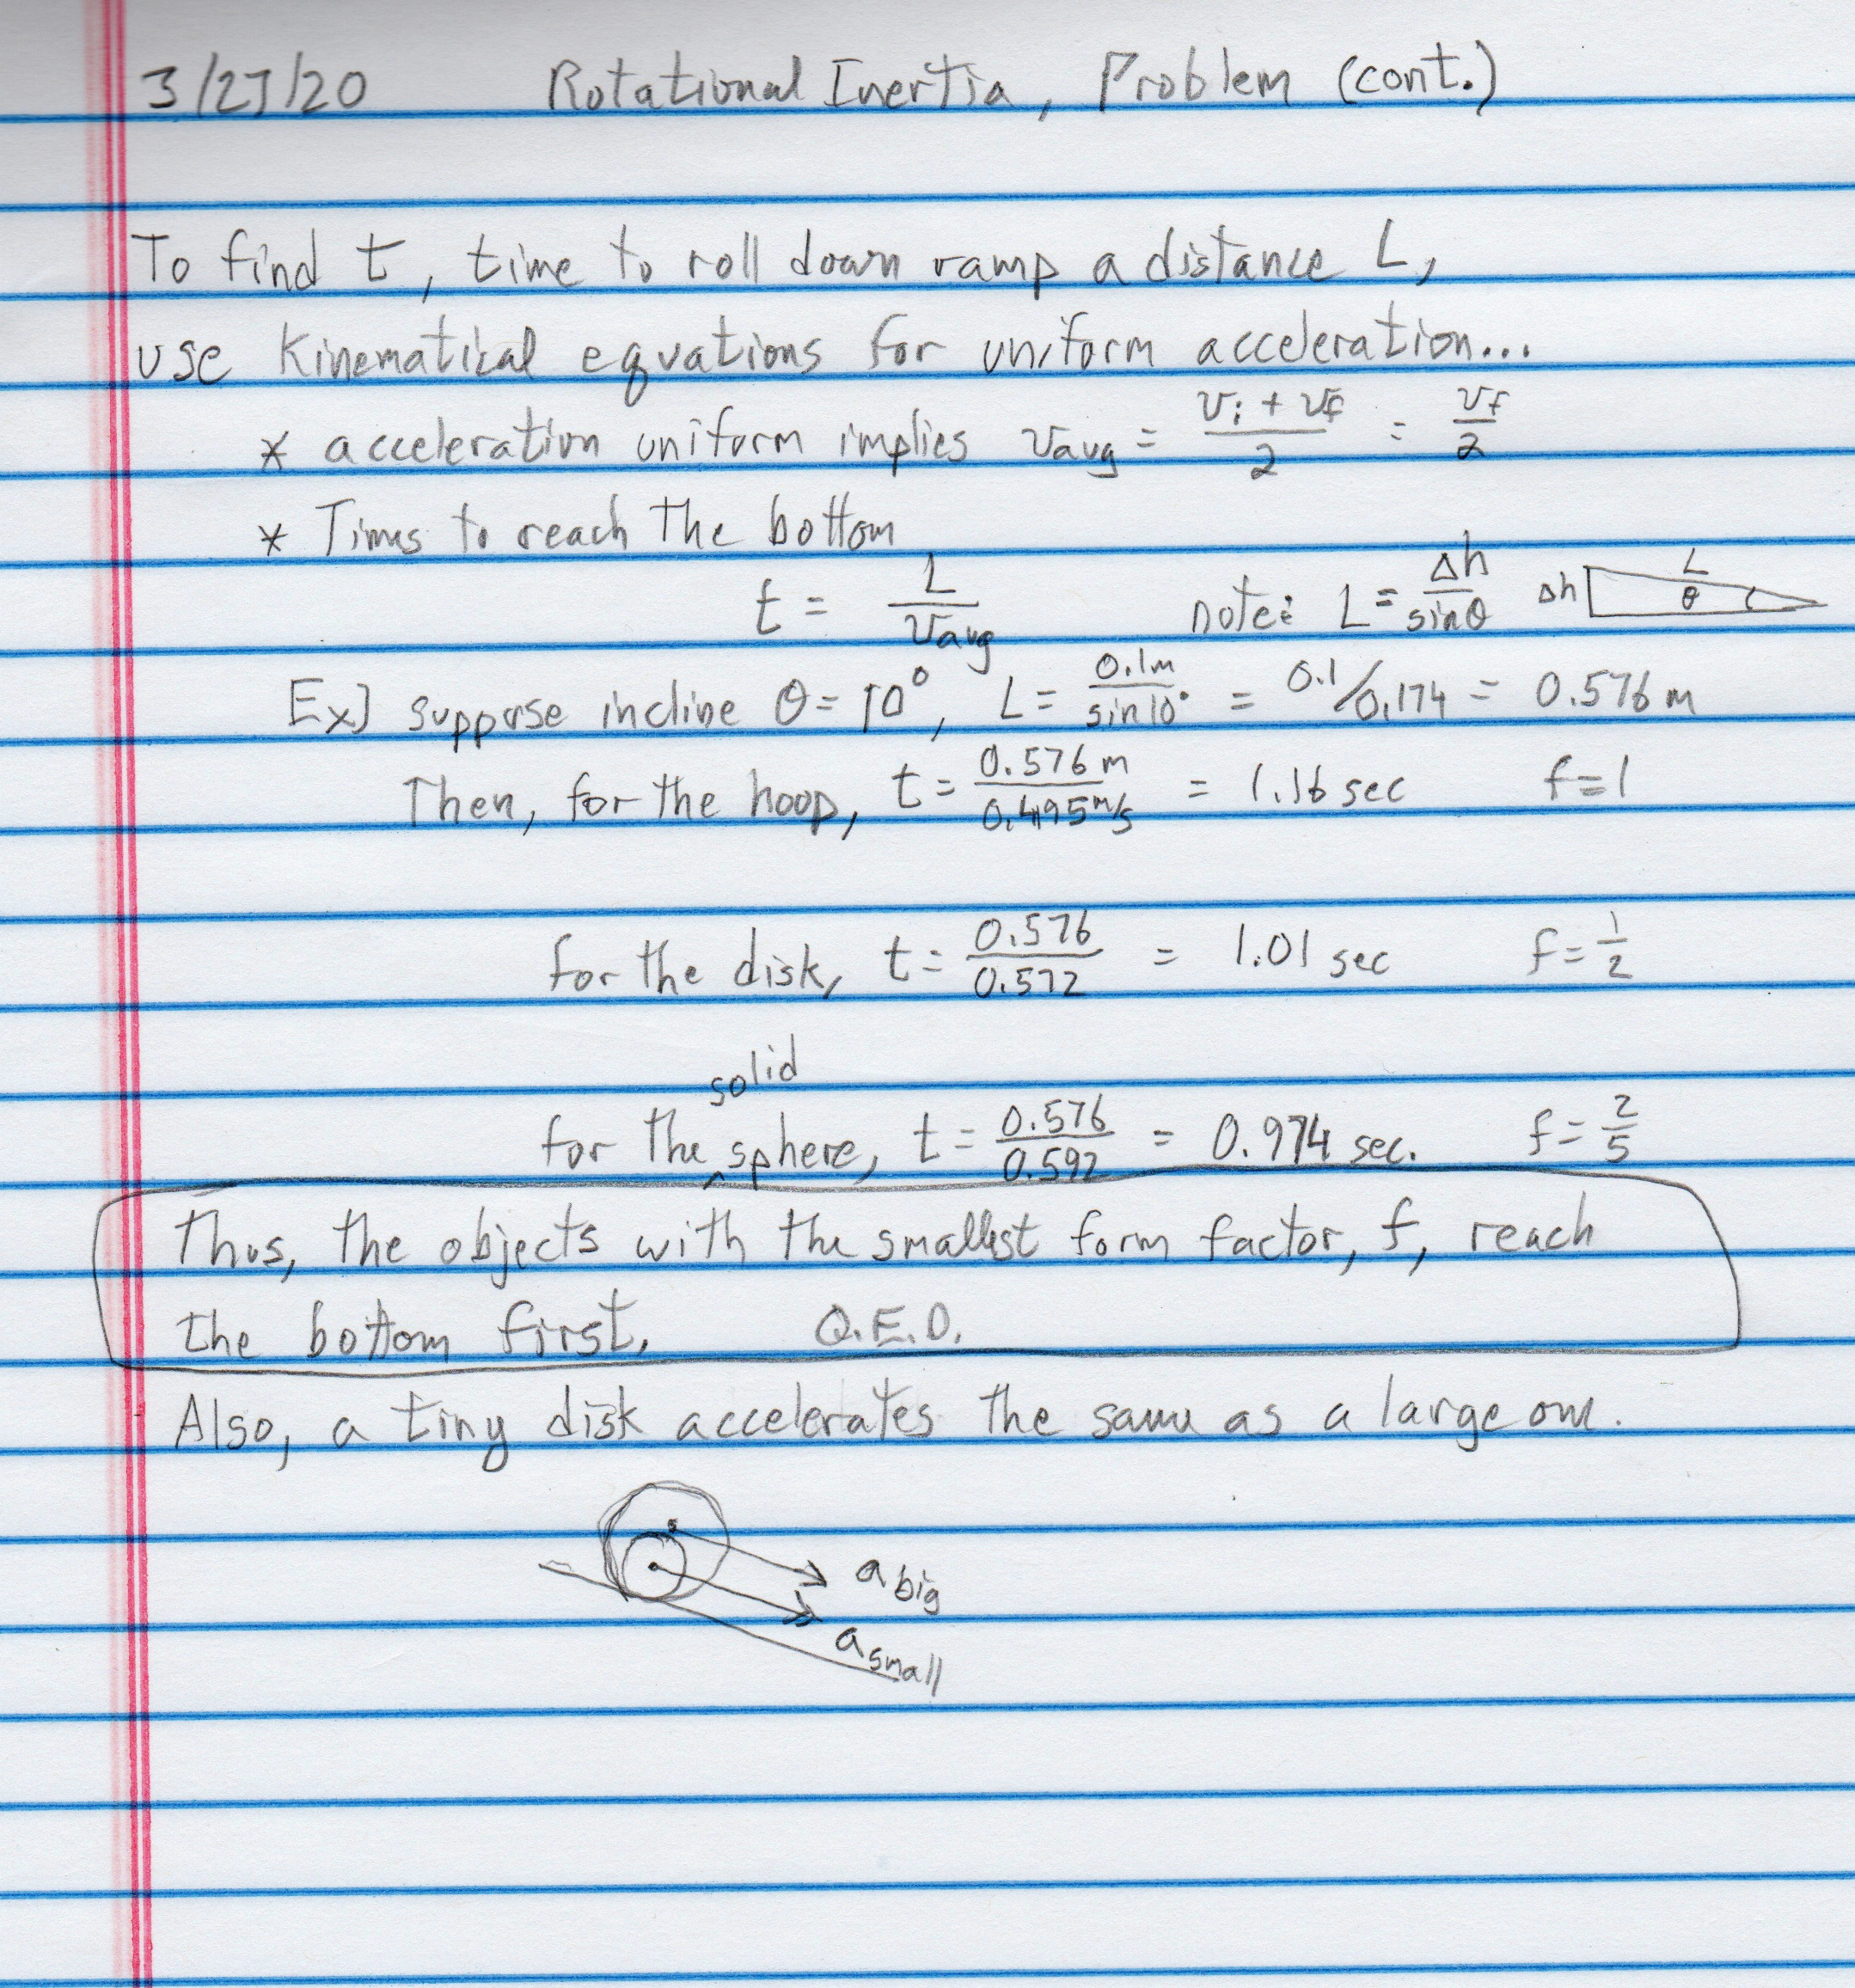 3/27/20 Rotational Inertia, Problem (cont.)
To find t, time to roll down ramp a distance L,
use kinematical equations for uniform acceleration...
* acceleration uniform implies v_avg = (v_i + v_f)/2 = v_f/2
* Times to reach the bottom
t = L/v_avg note: L = Δh/sinθ Δh L θ
Ex] suppose incline θ = 10°, L = 0.1m/sin10° = 0.1/0.174 = 0.576 m
Then, for the hoop, t = 0.576 m/0.495 m/s = 1.16 sec f = 1
for the disk, t = 0.576/0.572 = 1.01 sec f = 1/2
solid
for the ^ sphere, t = 0.576/0.592 = 0.974 sec. f = 2/5
Thus, the objects with the smallest form factor, f, reach
the bottom first. Q.E.D.
Also, a tiny disk accelerates the same as a large one.
a_big
a_small